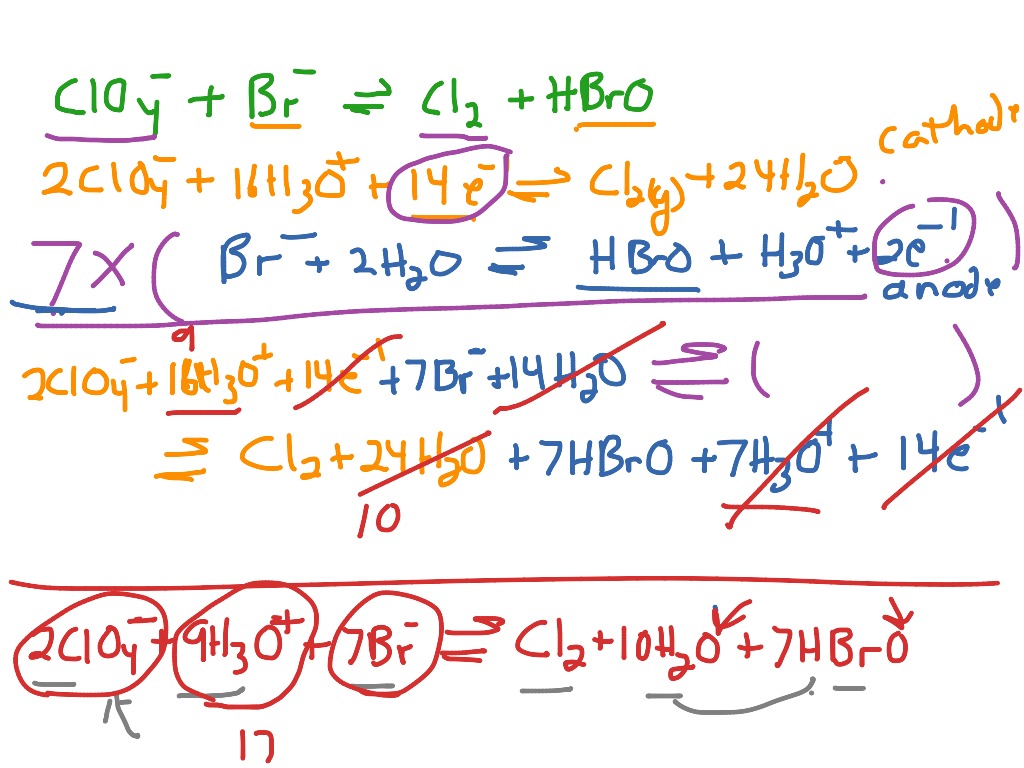 ClO₄⁻ + Br⁻ ⇌ Cl₂ + HBrO
cathode
2ClO₄⁻ + 16H₃O⁺ + 14e⁻ ⇌ Cl₂(g) + 24H₂O
7 × ( Br⁻ + 2H₂O ⇌ HBrO + H₃O⁺ + 2e⁻¹ )
anode
9
2ClO₄⁻ + 16H₃O⁺ + 14e⁻¹ + 7Br⁻ + 14H₂O ⇌ ( )
⇌ Cl₂ + 24H₂O + 7HBrO + 7H₃O⁺ + 14e⁻¹
10
2ClO₄⁻ + 9H₃O⁺ + 7Br⁻ ⇌ Cl₂ + 10H₂O + 7HBrO
17